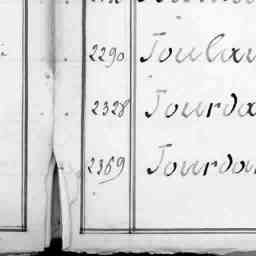 2290 Toulau
2328 Jourda
2369 Jourda